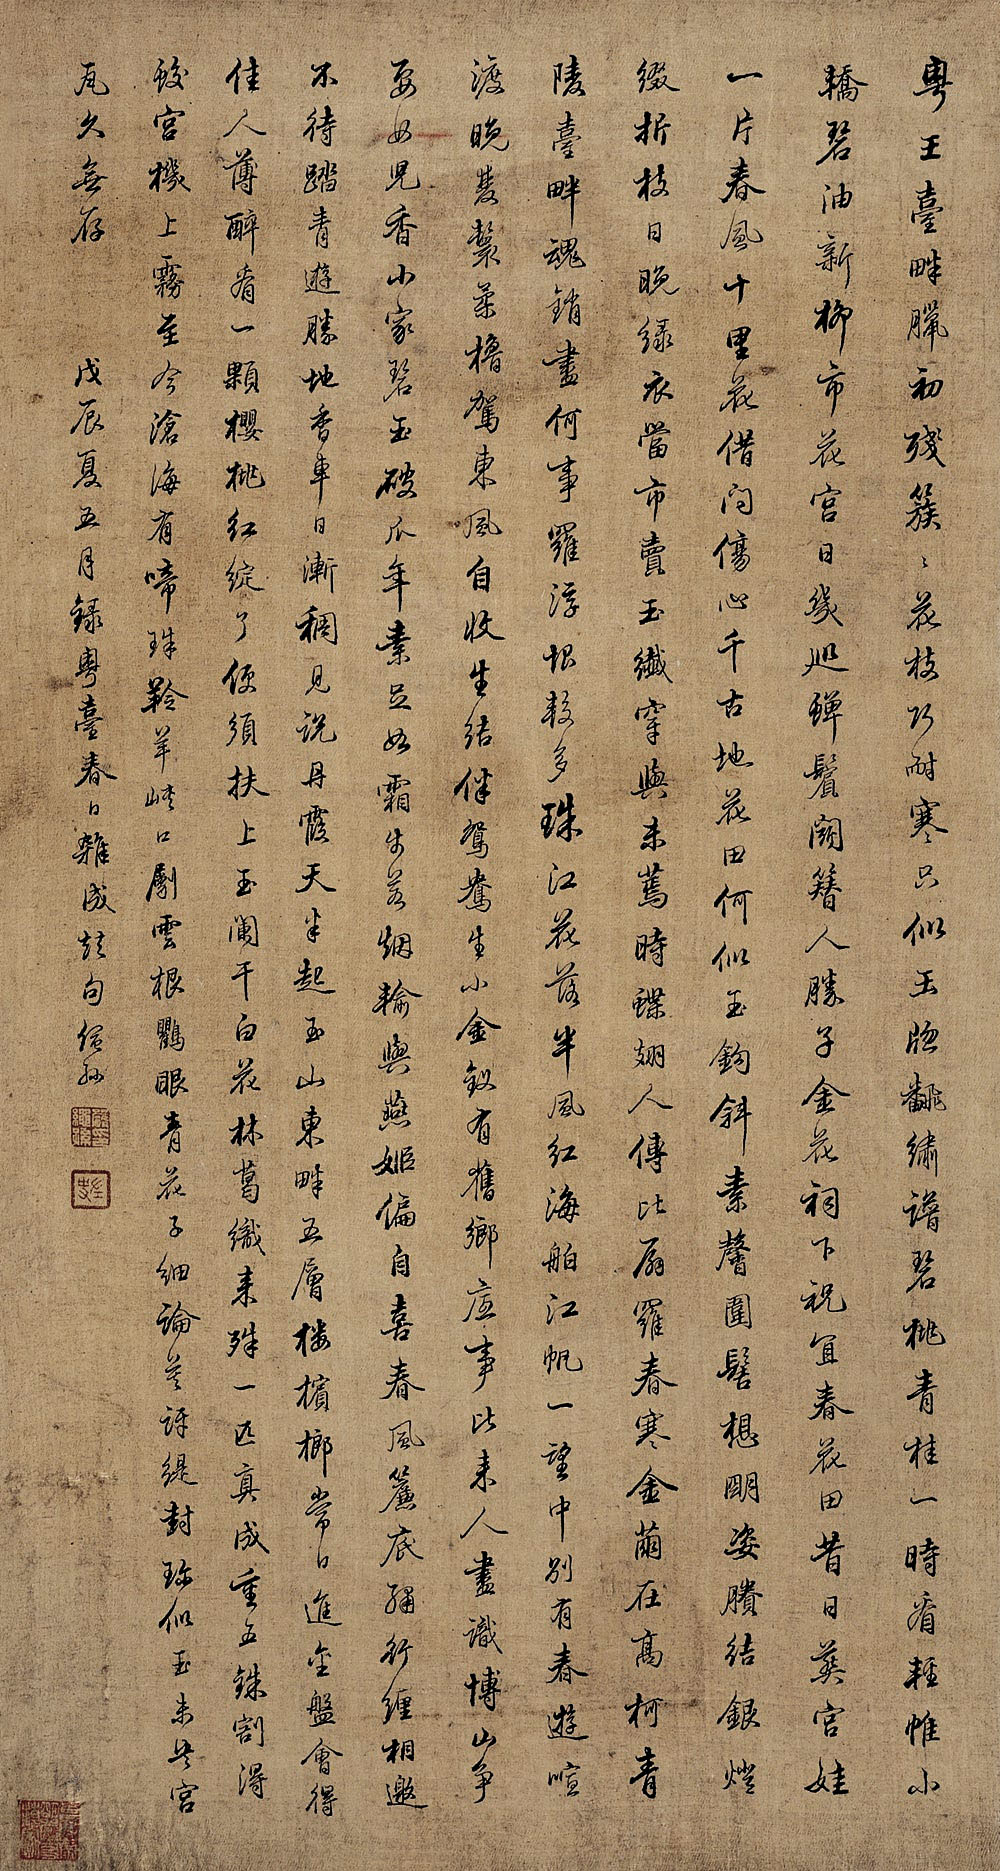 粵王臺畔臘初殘簇〻花枝巧耐寒只似玉牕翻繡譜碧桃青桂一時看輕帷小
轎碧油新柳市花宮日幾巡蟬鬢闊簪人勝子金花祠下祝宜春花田昔日葬宮娃
一片春風十里花借問傷心千古地花田何似玉鉤斜素馨圍髻想明姿賸結銀燈
綴折枝日晚綠衣當市賣玉纖穿與未蔫時蝶翅人傳比扇羅春寒金繭在高柯青
陵臺畔魂銷盡何事羅浮恨較多珠江花落半風紅海舶江帆一望中別有春遊喧
渡晚雙鬟柔櫓駕東風自收生結伴鴛鴦生小金釵有舊鄉底事比來人盡識博山爭
要女兒香小家碧玉破瓜年素足如霜步若烟輸與燕姬偏自喜春風簾底繡行纏相邀
不待踏青遊勝地香車日漸稠見說丹霞天半起玉山東畔五層樓檳榔常日進金盤會得
佳人薄醉看一顆櫻桃紅綻了便須扶上玉闌干白花林葛織來殊一匹真成重五銖割得
鮫宮機上霧至今滄海有啼珠羚羊峽口劚雲根鸜眼青花子細論莫訝緹封珍似玉未央宮
瓦久無存
戊辰夏五月錄粵臺春日雜成絕句